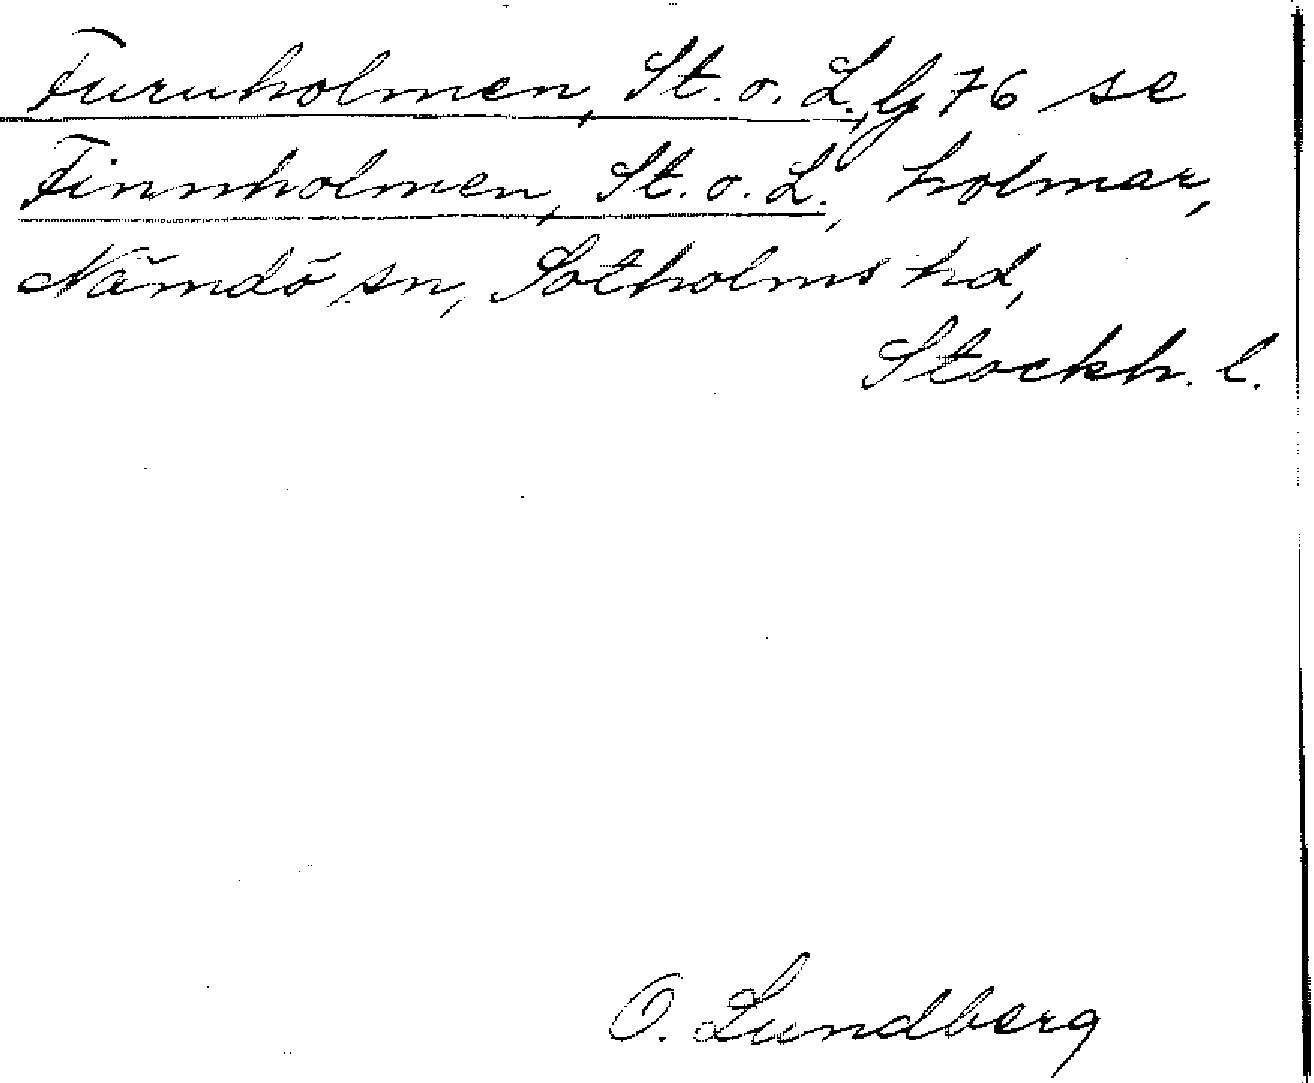 Furuholmen, St. o. L., G 76 se
Finnholmen, St. o. L., holmar,
Nämdö sn, Sotholms hd,
Stockh. l.
O. Lundberg